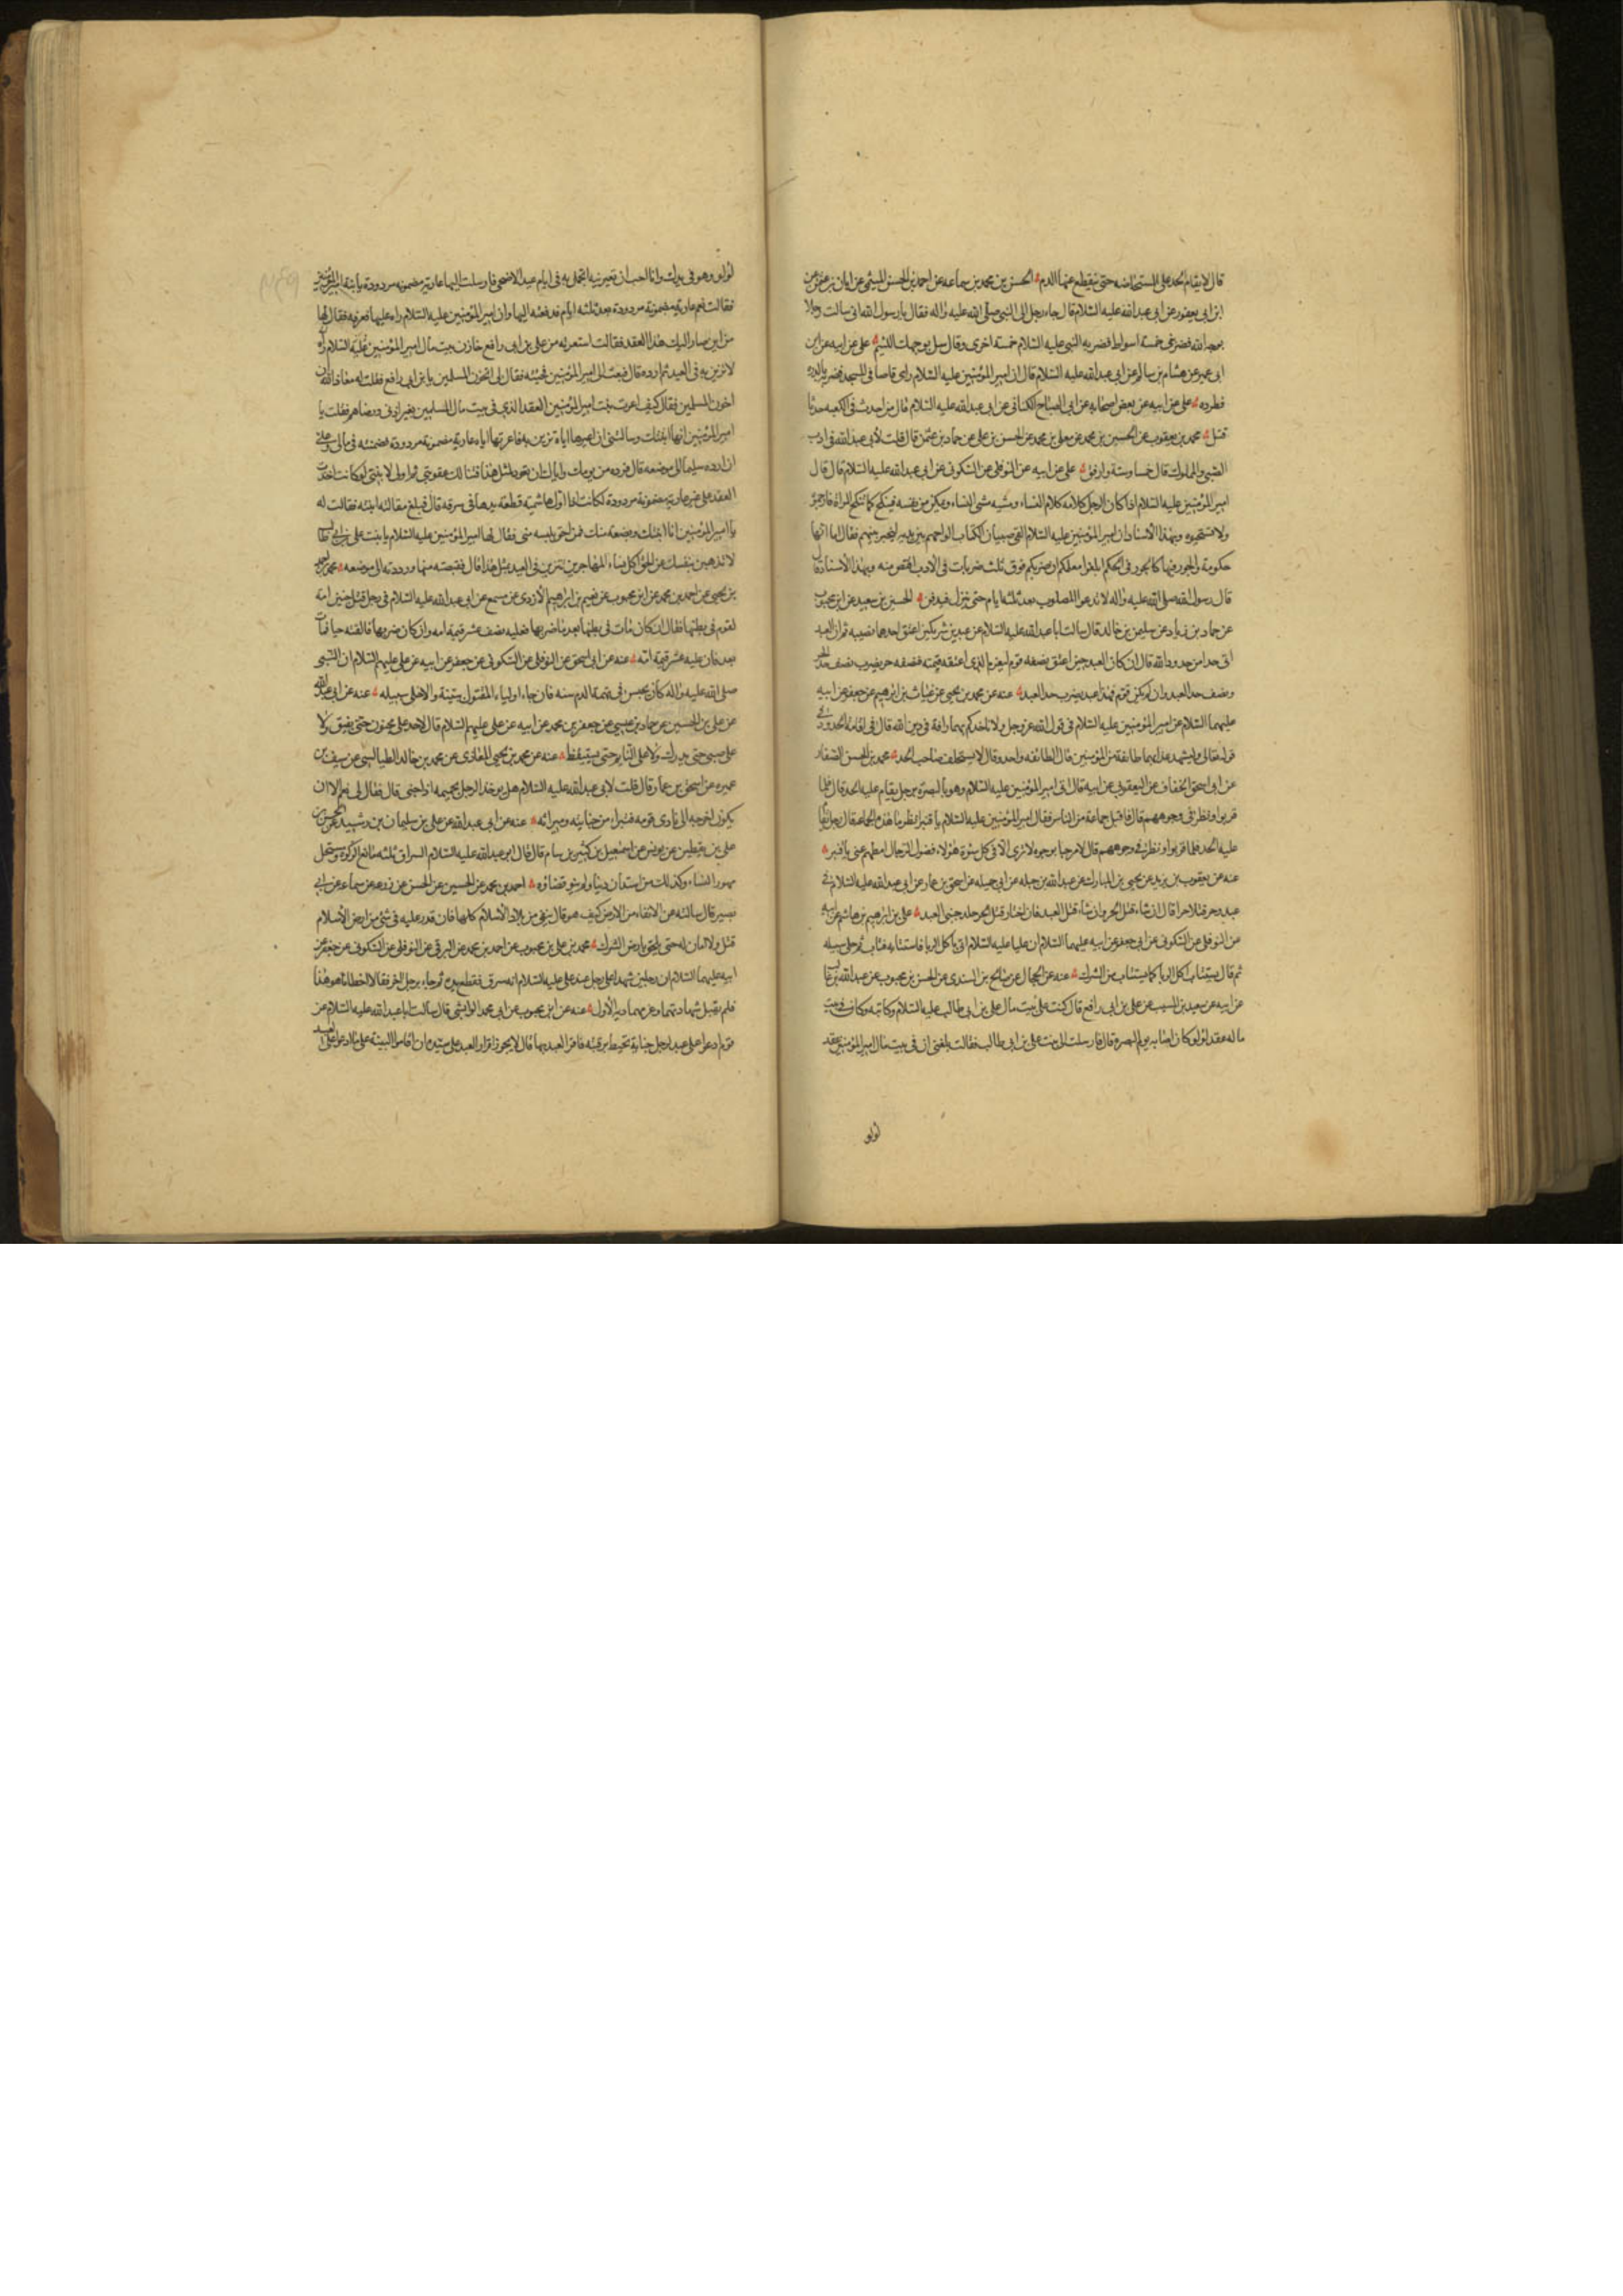 قال لا يقام الحد على المستحاضه حتى ينقطع عنها الدم الحسن بن محمد بن سماعه عن احمد بن الحسن الميثمى عن ابان بن عثمن عن
ابن ابى يعفور عن ابى عبد الله عليه السلام قال جاء رجل الى النبى صلى الله عليه واله فقال يا رسول الله انى سالت رجلا
بوجه الله فضربنى خمسة اسواط فضربه النبى عليه السلام خمسة اخرى وقال سل بوجهك اللئيم على عن ابيه عن ابن
ابى عمير عن هشام بن سالم عن ابى عبد الله عليه السلام قال ان امير المؤمنين عليه السلام راى قاصا فى المسجد فضربه بالدره
فطرده على عن ابيه عن بعض اصحابه عن ابى الصباح الكنانى عن ابى عبد الله عليه السلام قال من احدث فى الكعبه حدثا
قتل محمد بن يعقوب عن الحسين بن محمد عن معلى بن محمد عن الحسن بن على عن حماد بن عثمن قال قلت لأبى عبد الله فى ادب
الصبى والمملوك قال خمسا وستة وارفق على عن ابيه عن النوفلى عن السكونى عن ابى عبد الله عليه السلام قال قال
امير المؤمنين عليه السلام اذا كان الرجل كلامه كلام النساء ومشيه مشى النساء ويمكن من نفسه فينكح كما تنكح المراة فارجموه
ولا تستحيوه وبهذا الأسناد ان امير المؤمنين عليه السلام القى صبيان الكتاب الواحهم بين يديه ليخير بينهم فقال اما انها
حكومة والجور فيها كالجور فى الحكم ابلغوا معلمكم ان ضربكم فوق ثلث ضربات فى الادب اقتص منه وبهذا الأسناد قال
قال رسول الله صلى الله عليه واله لا تدعوا المصلوب بعد ثلثه ايام حتى ينزل فيدفن الحسين بن سعيد عن ابن محبوب
عن حماد بن زياد عن سليمن بن خالد قال سالت ابا عبد الله عليه السلام عن عبد بين شريكين اعتق احدهما نصيبه ثم ان العبد
اتى حدا من حدود الله قال ان كان العبد حين اعتق نصفه قوم ليغرم الذى اعتقه قيمته فنصفه حر يضرب نصف حد الحر
ونصف حد العبد وان لم يكن قوم فهذا عبد يضرب حد العبد عنه عن محمد بن يحيى عن غياث بن ابراهيم عن جعفر عن ابيه
عليهما السلام عن امير المؤمنين عليه السلام فى قول الله عز وجل ولا تاخذكم بهما رافة فى دين الله قال فى اقامة الحدود وفى
قوله تعالى وليشهد عذابهما طائفة من المؤمنين قال الطائفه واحد وقال لا يستحلف صاحب الحد محمد بن الحسن الصفار
عن ابى اسحق الخفاف عن اليعقوبى عن ابيه قال اتى امير المؤمنين عليه السلام وهو بالبصرة برجل يقام عليه الحد قال فلما
قربوا ونظر فى وجوههم قال فاقبل جماعة من الناس فقال امير المؤمنين عليه السلام يا قنبر انظر ما هذه الجماعة قال رجل يقام
عليه الحد فلما قربوا ونظر فى وجوههم قال لا مرحبا بوجوه لا ترى الا فى كل سوء هؤلاء فضول الرجال امطهم عنى يا قنبر
عنه عن يعقوب بن يزيد عن يحيى بن المبارك عن عبد الله بن جبله عن ابى جميله عن اسحق بن عمار عن ابى عبد الله عليه السلام فى
عبد وحر قتلا حرا قال ان شاء قتل الحر وان شاء قتل العبد فان اختار قتل الحر جلد جنبى العبد على بن ابراهيم بن هاشم عن ابيه
عن النوفلى عن السكونى عن ابى جعفر عن ابيه عليهما السلام ان عليا عليه السلام اتى باكل الربا فاستتابه فتاب ثم خلى سبيله
ثم قال يستتاب اكل الربا كما يستتاب من الشرك عنه عن الحجال عن صالح بن السندى عن الحسن بن محبوب عن عبد الله بن غالب
عن ابيه عن سعيد بن المسيب عن على بن ابى رافع قال كنت على بيت مال على بن ابى طالب عليه السلام وكاتبه وكان فى بيت
ماله عقد لؤلؤ كان اصابه يوم البصره قال فارسلت الى بنت على بن ابى طالب فقالت بلغنى ان فى بيت مال امير المؤمنين عقد
لؤلؤ
لؤلؤ وهو فى يدك وانا احب ان تعيرنيه اتجمل به فى ايام عيد الاضحى فارسلت اليها عارية مضمونه مردودة يا بنت امير المؤمنين
فقالت نعم عارية مضمونة مردودة بعد ثلثه ايام فدفعته اليها وان امير المؤمنين عليه السلام راه عليها فعرفه فقال لها
من اين صار اليك هذا العقد فقالت استعرته من على بن ابى رافع خازن بيت مال امير المؤمنين عليه السلام
لاتزين به فى العيد ثم ارده قال فبعث الى امير المؤمنين فجئته فقال لى اتخون المسلمين يا بن ابى رافع فقلت له معاذ الله ان
اخون المسلمين فقال كيف اعرت بنت امير المؤمنين العقد الذى فى بيت مال المسلمين بغير اذنى ورضاهم فقلت يا
امير المؤمنين انها ابنتك وسالتنى ان اعيرها اياه تزين به فاعرتها اياه عارية مضمونة مردودة فضمنته فى مالى وعلى
ان ارده سليما الى موضعه قال فرده من يومك واياك ان تعود لمثل هذا فتنالك عقوبتى ثم اولى لابنتى لو كانت اخذت
العقد على غير عارية مضمونة مردودة لكانت اذا اول هاشمية قطعت يدها فى سرقه قال فبلغ مقالته ابنته فقالت له
يا امير المؤمنين انا ابنتك وبضعة منك فمن احق بلبسه منى فقال لها امير المؤمنين عليه السلام يا بنت على بن ابى طالب
لا تذهبين بنفسك عن الحق اكل نساء المهاجرين تتزين فى العيد بمثل هذا قال فقبضته منها ورددته الى موضعه محمد
بن يحيى عن احمد بن محمد عن ابن محبوب عن نعيم بن ابراهيم الأزدى عن مسمع عن ابى عبد الله عليه السلام فى رجل قتل جنين امة
لقوم فى بطنها فقال ان كان مات فى بطنها بعد ما ضربها فعليه نصف عشر قيمة امه وان كان ضربها فالقته حيا فمات
بعد فان عليه عشر قيمة امه عنه عن ابى اسحق عن النوفلى عن السكونى عن جعفر عن ابيه عن على عليهم السلام ان النبى
صلى الله عليه واله كان يحبس فى تهمة الدم سنه فان جاء اولياء المقتول ببينة والا خلى سبيله عنه عن ابى عبد الله
عن على بن الحسين عن حماد بن عيسى عن جعفر بن محمد عن ابيه عن على عليهم السلام قال لا حد على مجنون حتى يفيق ولا
على صبى حتى يدرك ولا على النايم حتى يستيقظ عنه عن محمد بن يحيى المعاذى عن محمد بن خالد الطيالسى عن سيف بن
عميره عن اسحق بن عمار قال قلت لابى عبد الله عليه السلام هل يوخذ الرجل بحميمه اذا جنى قال فقال لى نعم الا ان
يكون اخرجه الى نادى قومه فتبرا من جنايته وميراثه عنه عن ابى عبد الله عن على بن سليمان بن رشيد عن الحسن بن
على بن يقطين عن يونس عن اسمعيل بن كثير بن سام قال قال ابو عبد الله عليه السلام السراق ثلثه مانع الزكوة ومستحل
مهور النساء وكذلك من استدان دينا ولم ينو قضاؤه احمد بن محمد عن الحسين عن الحسن عن زرعه عن سماعه عن ابى
بصير قال سالته عن الانفاء من الارض كيف هو قال ينفى من بلاد الأسلام كلها فان قدر عليه فى شئ من ارض الأسلام
قتل ولا امان له حتى يلحق بارض الشرك محمد بن على بن محبوب عن احمد بن محمد عن البرقى عن النوفلى عن السكونى عن جعفر عن
ابيه عليهما السلام ان رجلين شهدا على رجل عند على عليه السلام انه سرق فقطع يده ثم جاء برجل اخر فقالا اخطانا هو هذا
فلم تقبل شهادتهما وغرمهما دية الأول عنه عن ابن محبوب عن ابى محمد الوابشى قال سالت ابا عبد الله عليه السلام عن
قوم ادعوا على عبد رجل جناية تحيط برقبته فاقر العبد بها قال لا يجوز اقرار العبد على سيده فان اقاموا البينة على ما ادعوا على العبد